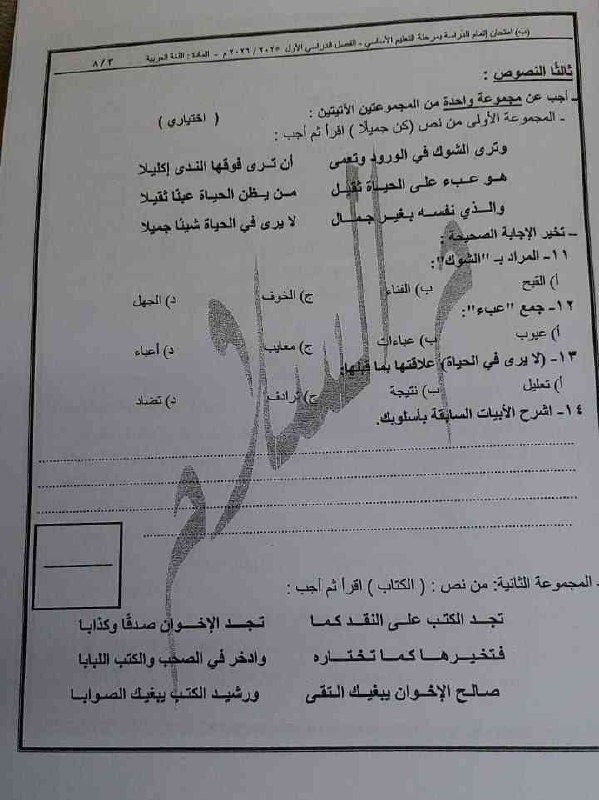 (ب) امتحان إتمام الدراسة بمرحلة التعليم الأساسي - الفصل الدراسي الأول ٢٠٢٥ / ٢٠٢٦ م - المادة : اللغة العربية ٨/٣
ثالثًا النصوص :
ـ أجب عن مجموعة واحدة من المجموعتين الآتيتين : ( اختياري )
ـ المجموعة الأولى من نص (كن جميلًا) اقرأ ثم أجب :
وترى الشوك في الورود وتعمى أن ترى فوقها الندى إكليلا
هو عبء على الحياة ثقيل من يظن الحياة عبئا ثقيلا
والذي نفسه بغير جمال لا يرى في الحياة شيئا جميلا
ـ تخير الإجابة الصحيحة :
١١- المراد بـ "الشوك":
أ) القبح ب) الفناء ج) الخرف د) الجهل
١٢- جمع "عبء":
أ) عيوب ب) عباءات ج) معايب د) أعباء
١٣- (لا يرى في الحياة) علاقتها بما قبلها:
أ) تعليل ب) نتيجة ج) ترادف د) تضاد
١٤- اشرح الأبيات السابقة بأسلوبك.
السلام
ـ المجموعة الثانية: من نص : ( الكتاب ) اقرأ ثم أجب :
تجد الكتب على النقد كما تجد الإخوان صدقًا وكذابا
فتخيرها كما تختاره وادخر في الصحب والكتب اللبابا
صالح الإخوان يبغيك التقى ورشيد الكتب يبغيك الصوابا